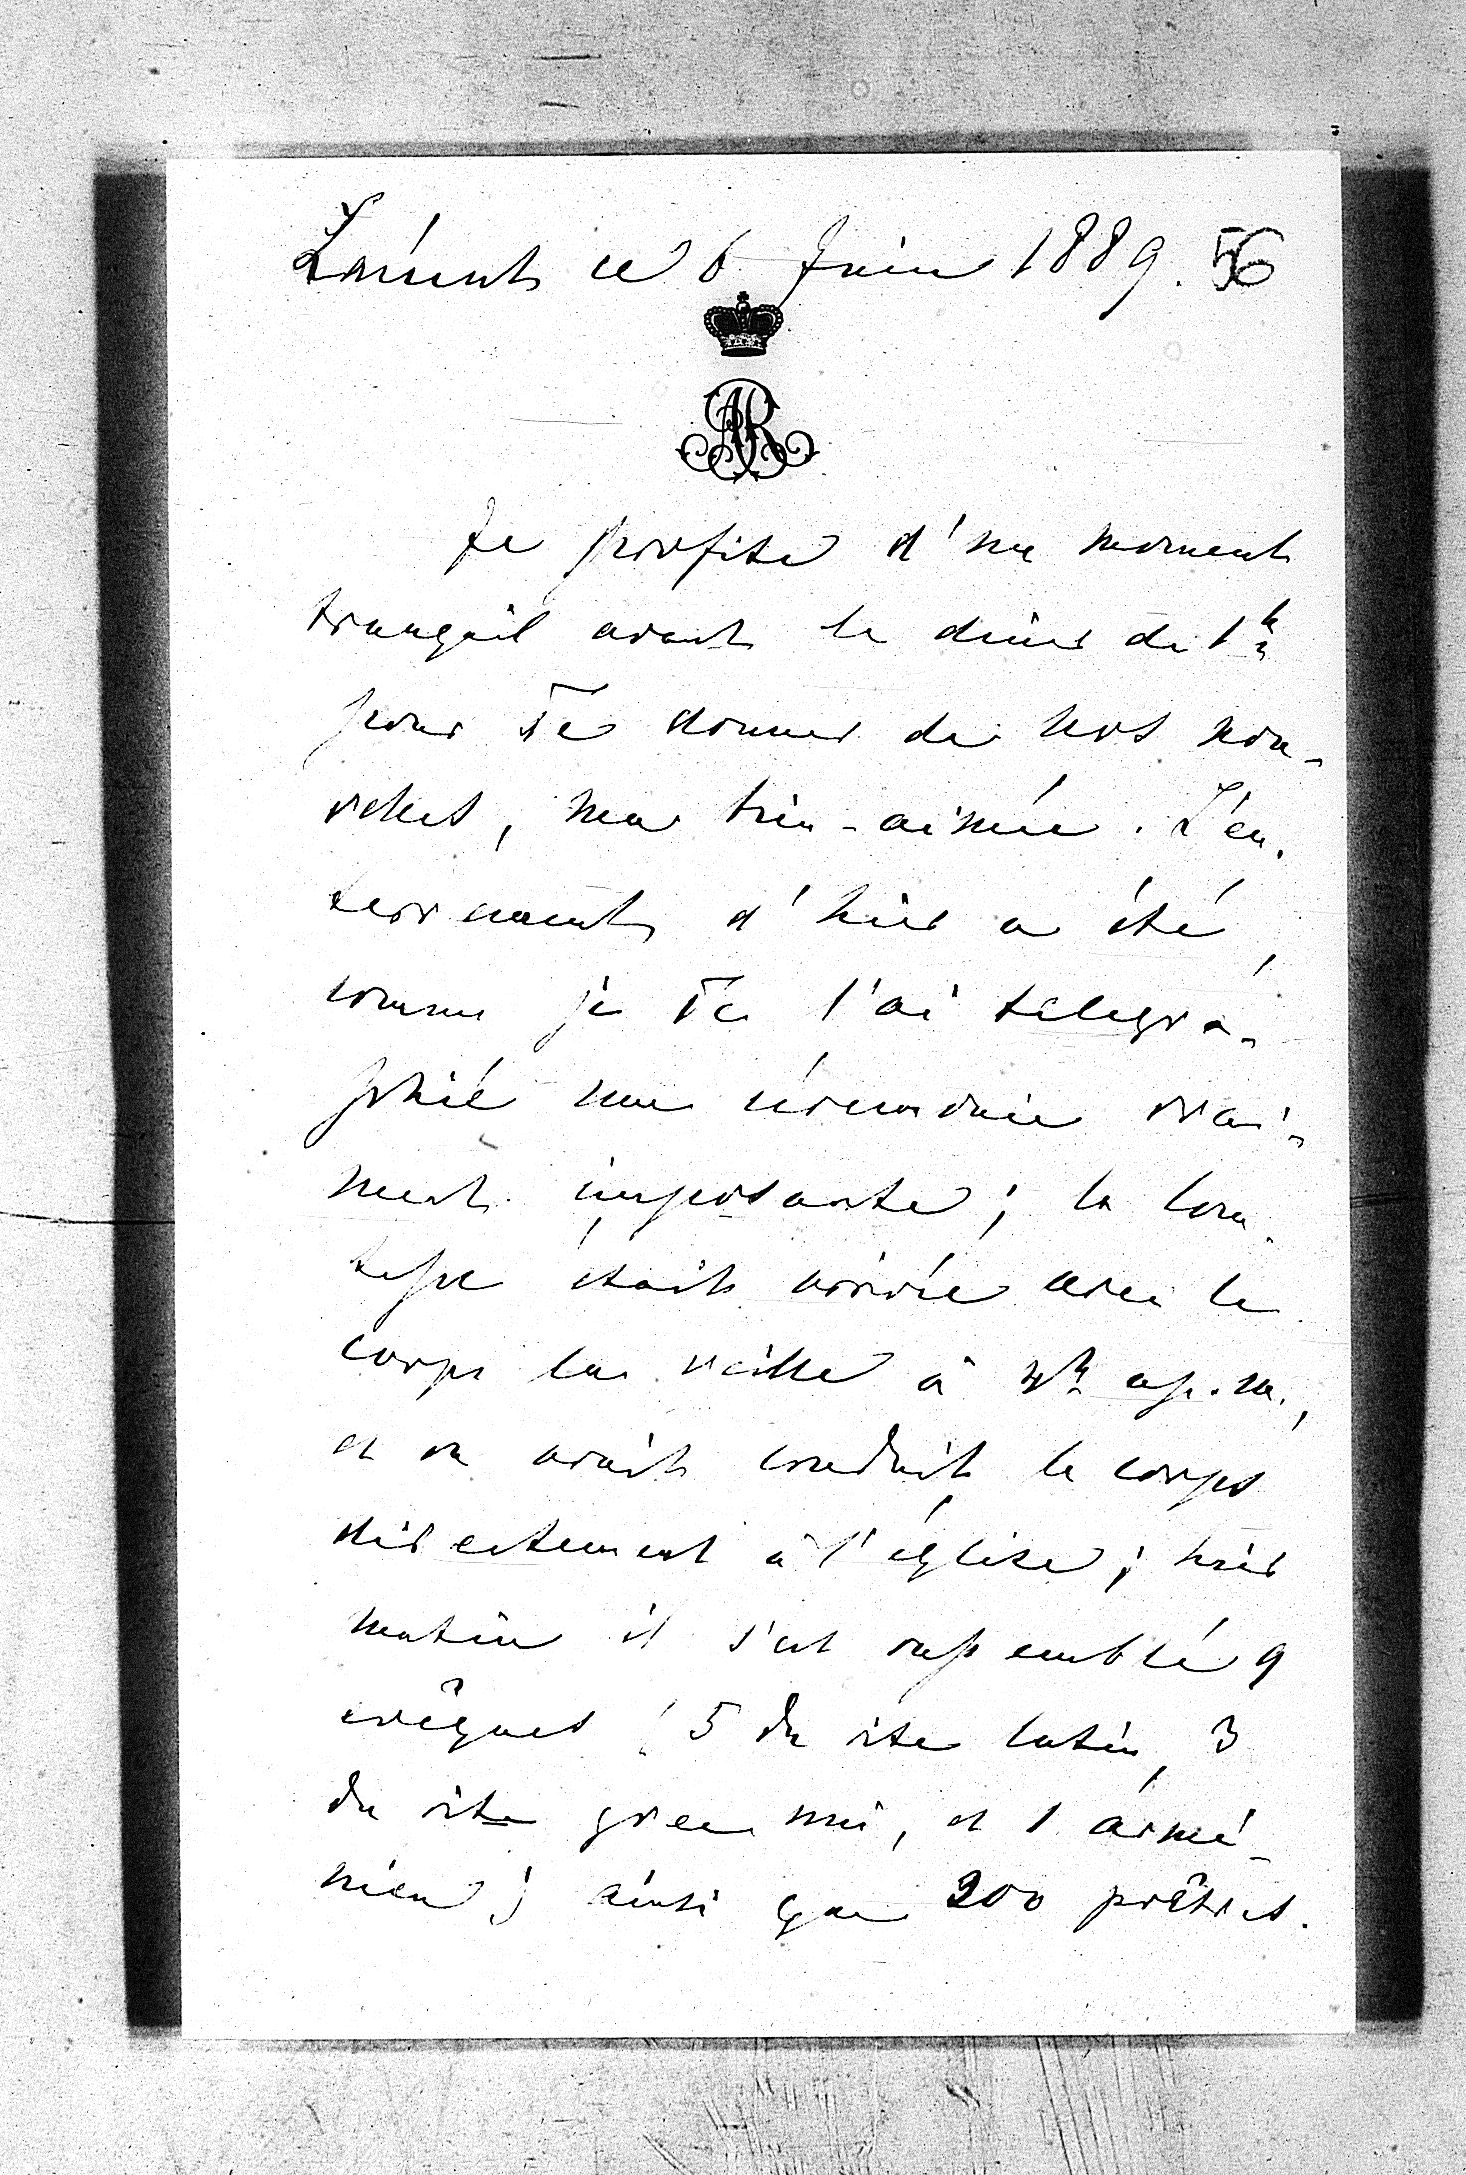 Łańcut ce 6 Juin 1889. 56
AR
Je profite d'un moment
tranquil avant le diner de 1h
pour Te donner de nos nou-
velles, ma bien-aimée. L'en-
terrement d'hier a été,
comme je Te l'ai telegra-
phié une cérémonie vrai-
ment imposante; la Com-
tesse était arrivée avec le
corps la veille à 4h ap. m.,
et on avait conduit le corps
directement à l'église; hier
matin il s'est rassemblé 9
evêques (5 du rite latin, 3
du rite grec uni, et 1 armé-
nien) ainsi que 200 prêtres.